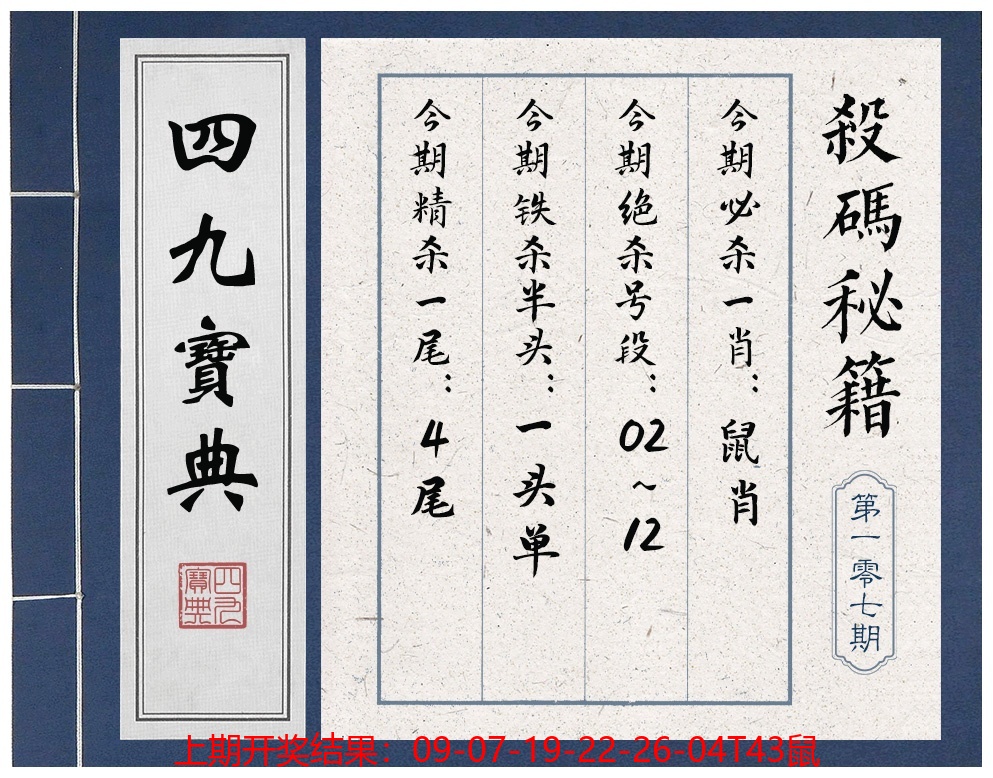 殺碼秘籍
第一零七期
今期必杀一肖：鼠肖
今期绝杀号段：02~12
今期铁杀半头：一头单
今期精杀一尾：4尾
四九寶典
四九寶典
上期开奖结果：09-07-19-22-26-04T43鼠